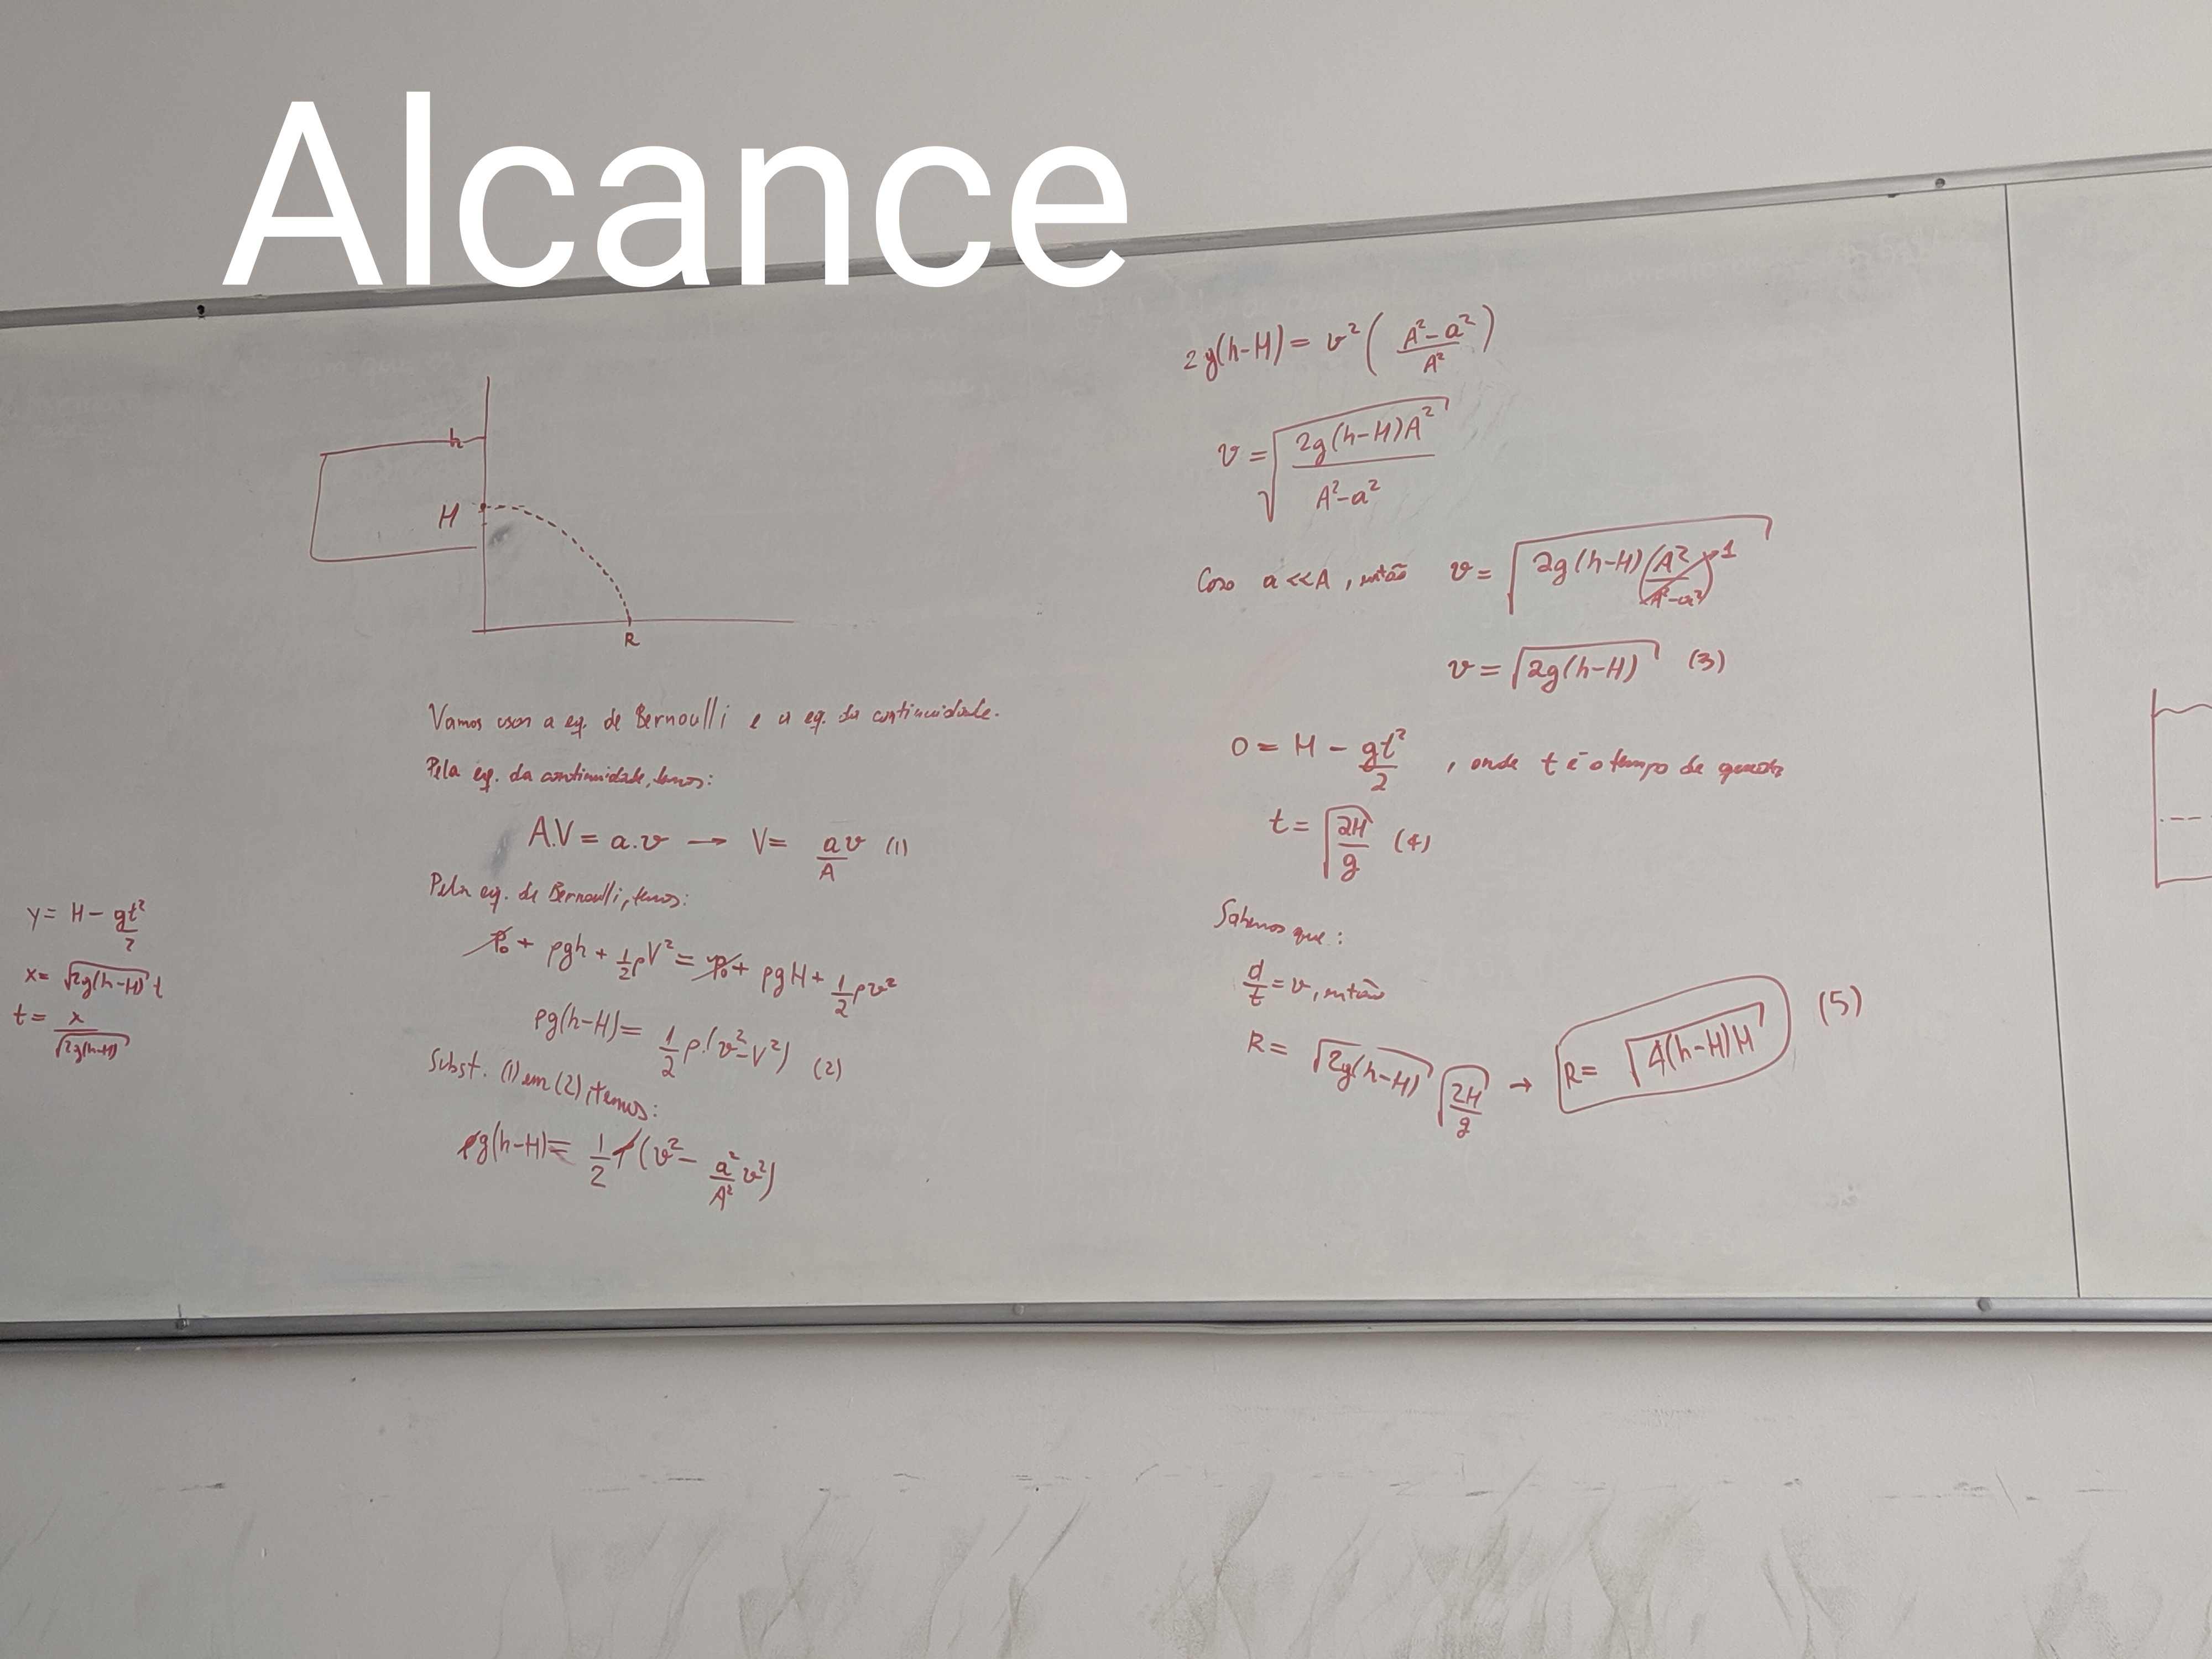 Alcance
h
H
R
Vamos usar a eq. de Bernoulli e a eq. da continuidade.
Pela eq. da continuidade, temos:
A.V = a.v → V = av/A (1)
Pela eq. de Bernoulli, temos:
P₀ + ρgh + 1/2 ρV² = P₀ + ρgH + 1/2 ρv²
ρg(h-H) = 1/2 ρ.(v²-V²) (2)
Subst. (1) em (2), temos:
ρg(h-H) = 1/2 ρ(v² - a²/A² v²)
y = H - gt²/2
x = √2g(h-H) t
t = x/√2g(h-H)
2g(h-H) = v² (A²-a²/A²)
v = √2g(h-H)A²/A²-a²
Caso a<<A, então v = √2g(h-H)(A²/A²-a²) 1
v = √2g(h-H) (3)
0 = H - gt²/2 , onde t é o tempo de queda
t = √2H/g (4)
Sabemos que:
d/t = v, então
R = √2g(h-H) √2H/g → R = √4(h-H)H (5)